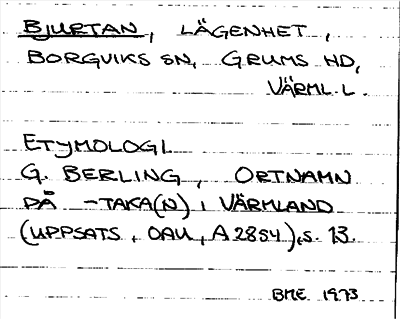 BJURTAN, LÄGENHET,
BORGVIKS SN, GRUMS HD,
VÄRML. L.
ETYMOLOGI
G. BERLING, ORTNAMN
PÅ -TAKA(N) I VÄRMLAND
(UPPSATS, OAU, A 2854), S. 13.
BME 1973